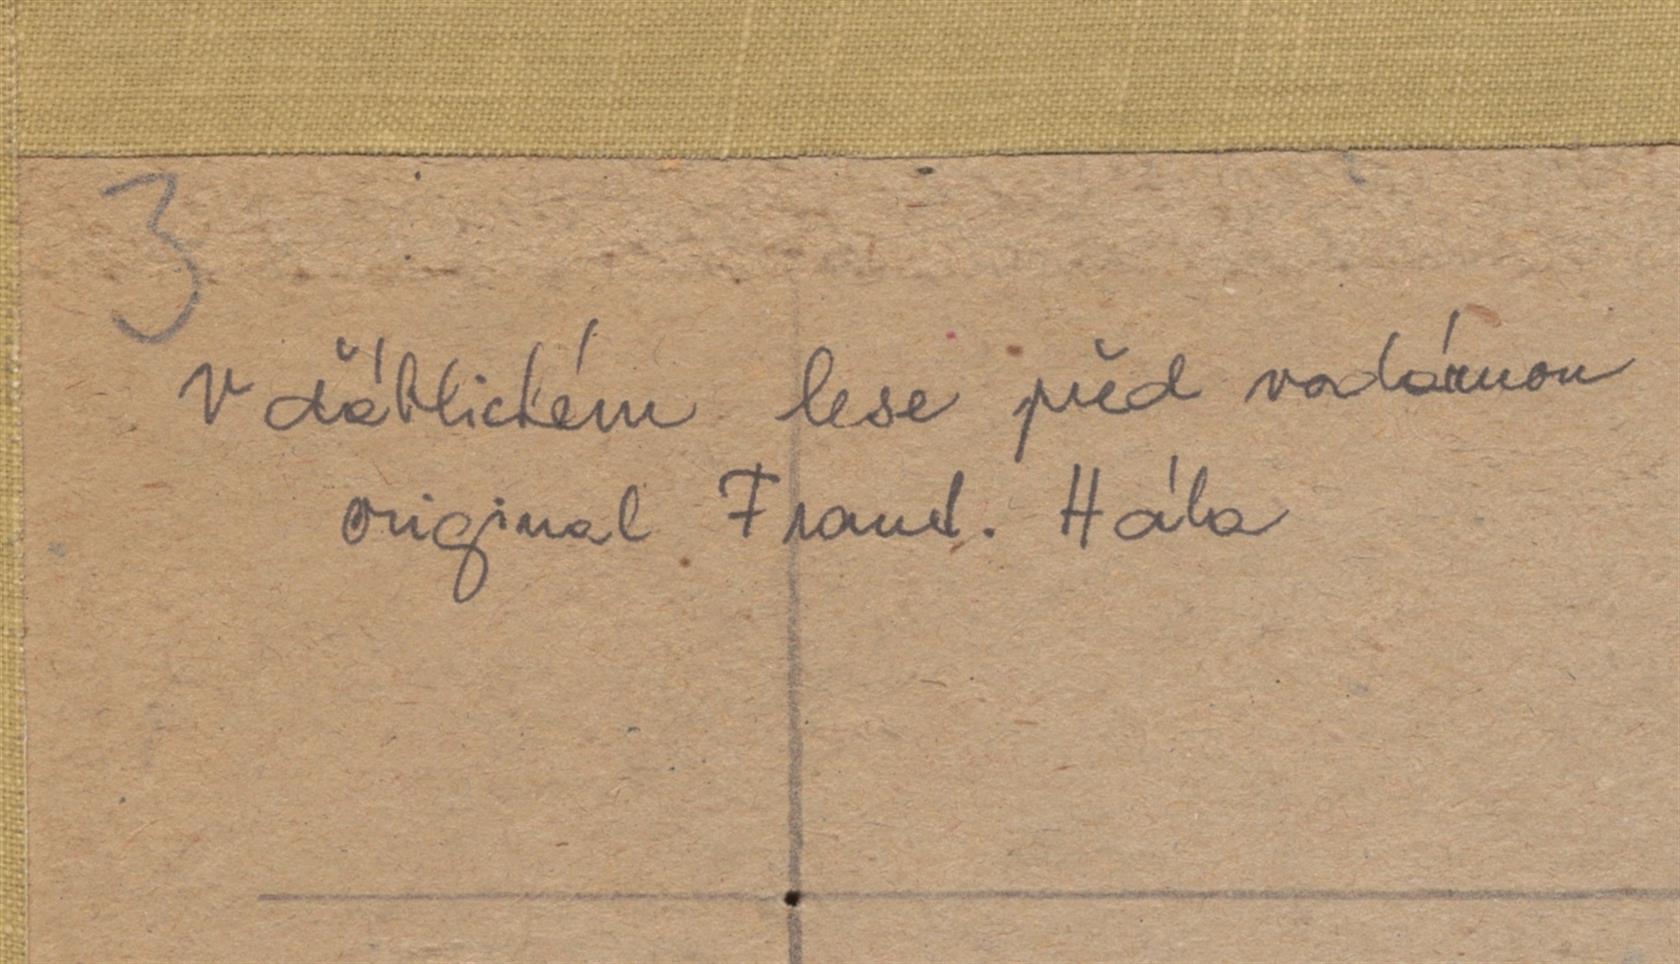 3
V ďáblickém lese před vodárnou
original Frant. Hála